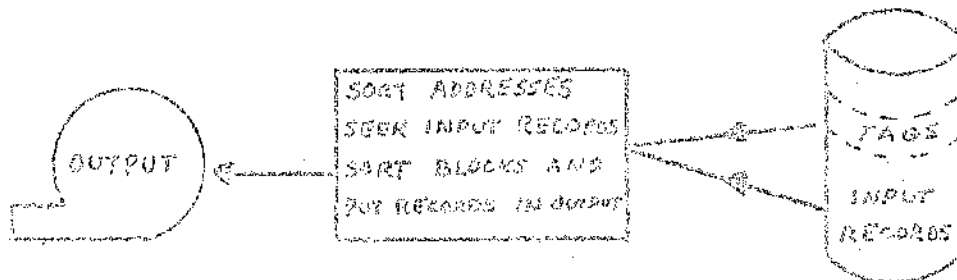 OUTPUT
SORT ADDRESSES
SEEK INPUT RECORDS
SORT BLOCKS AND
PUT RECORDS IN OUTPUT
TAGS
INPUT
RECORDS